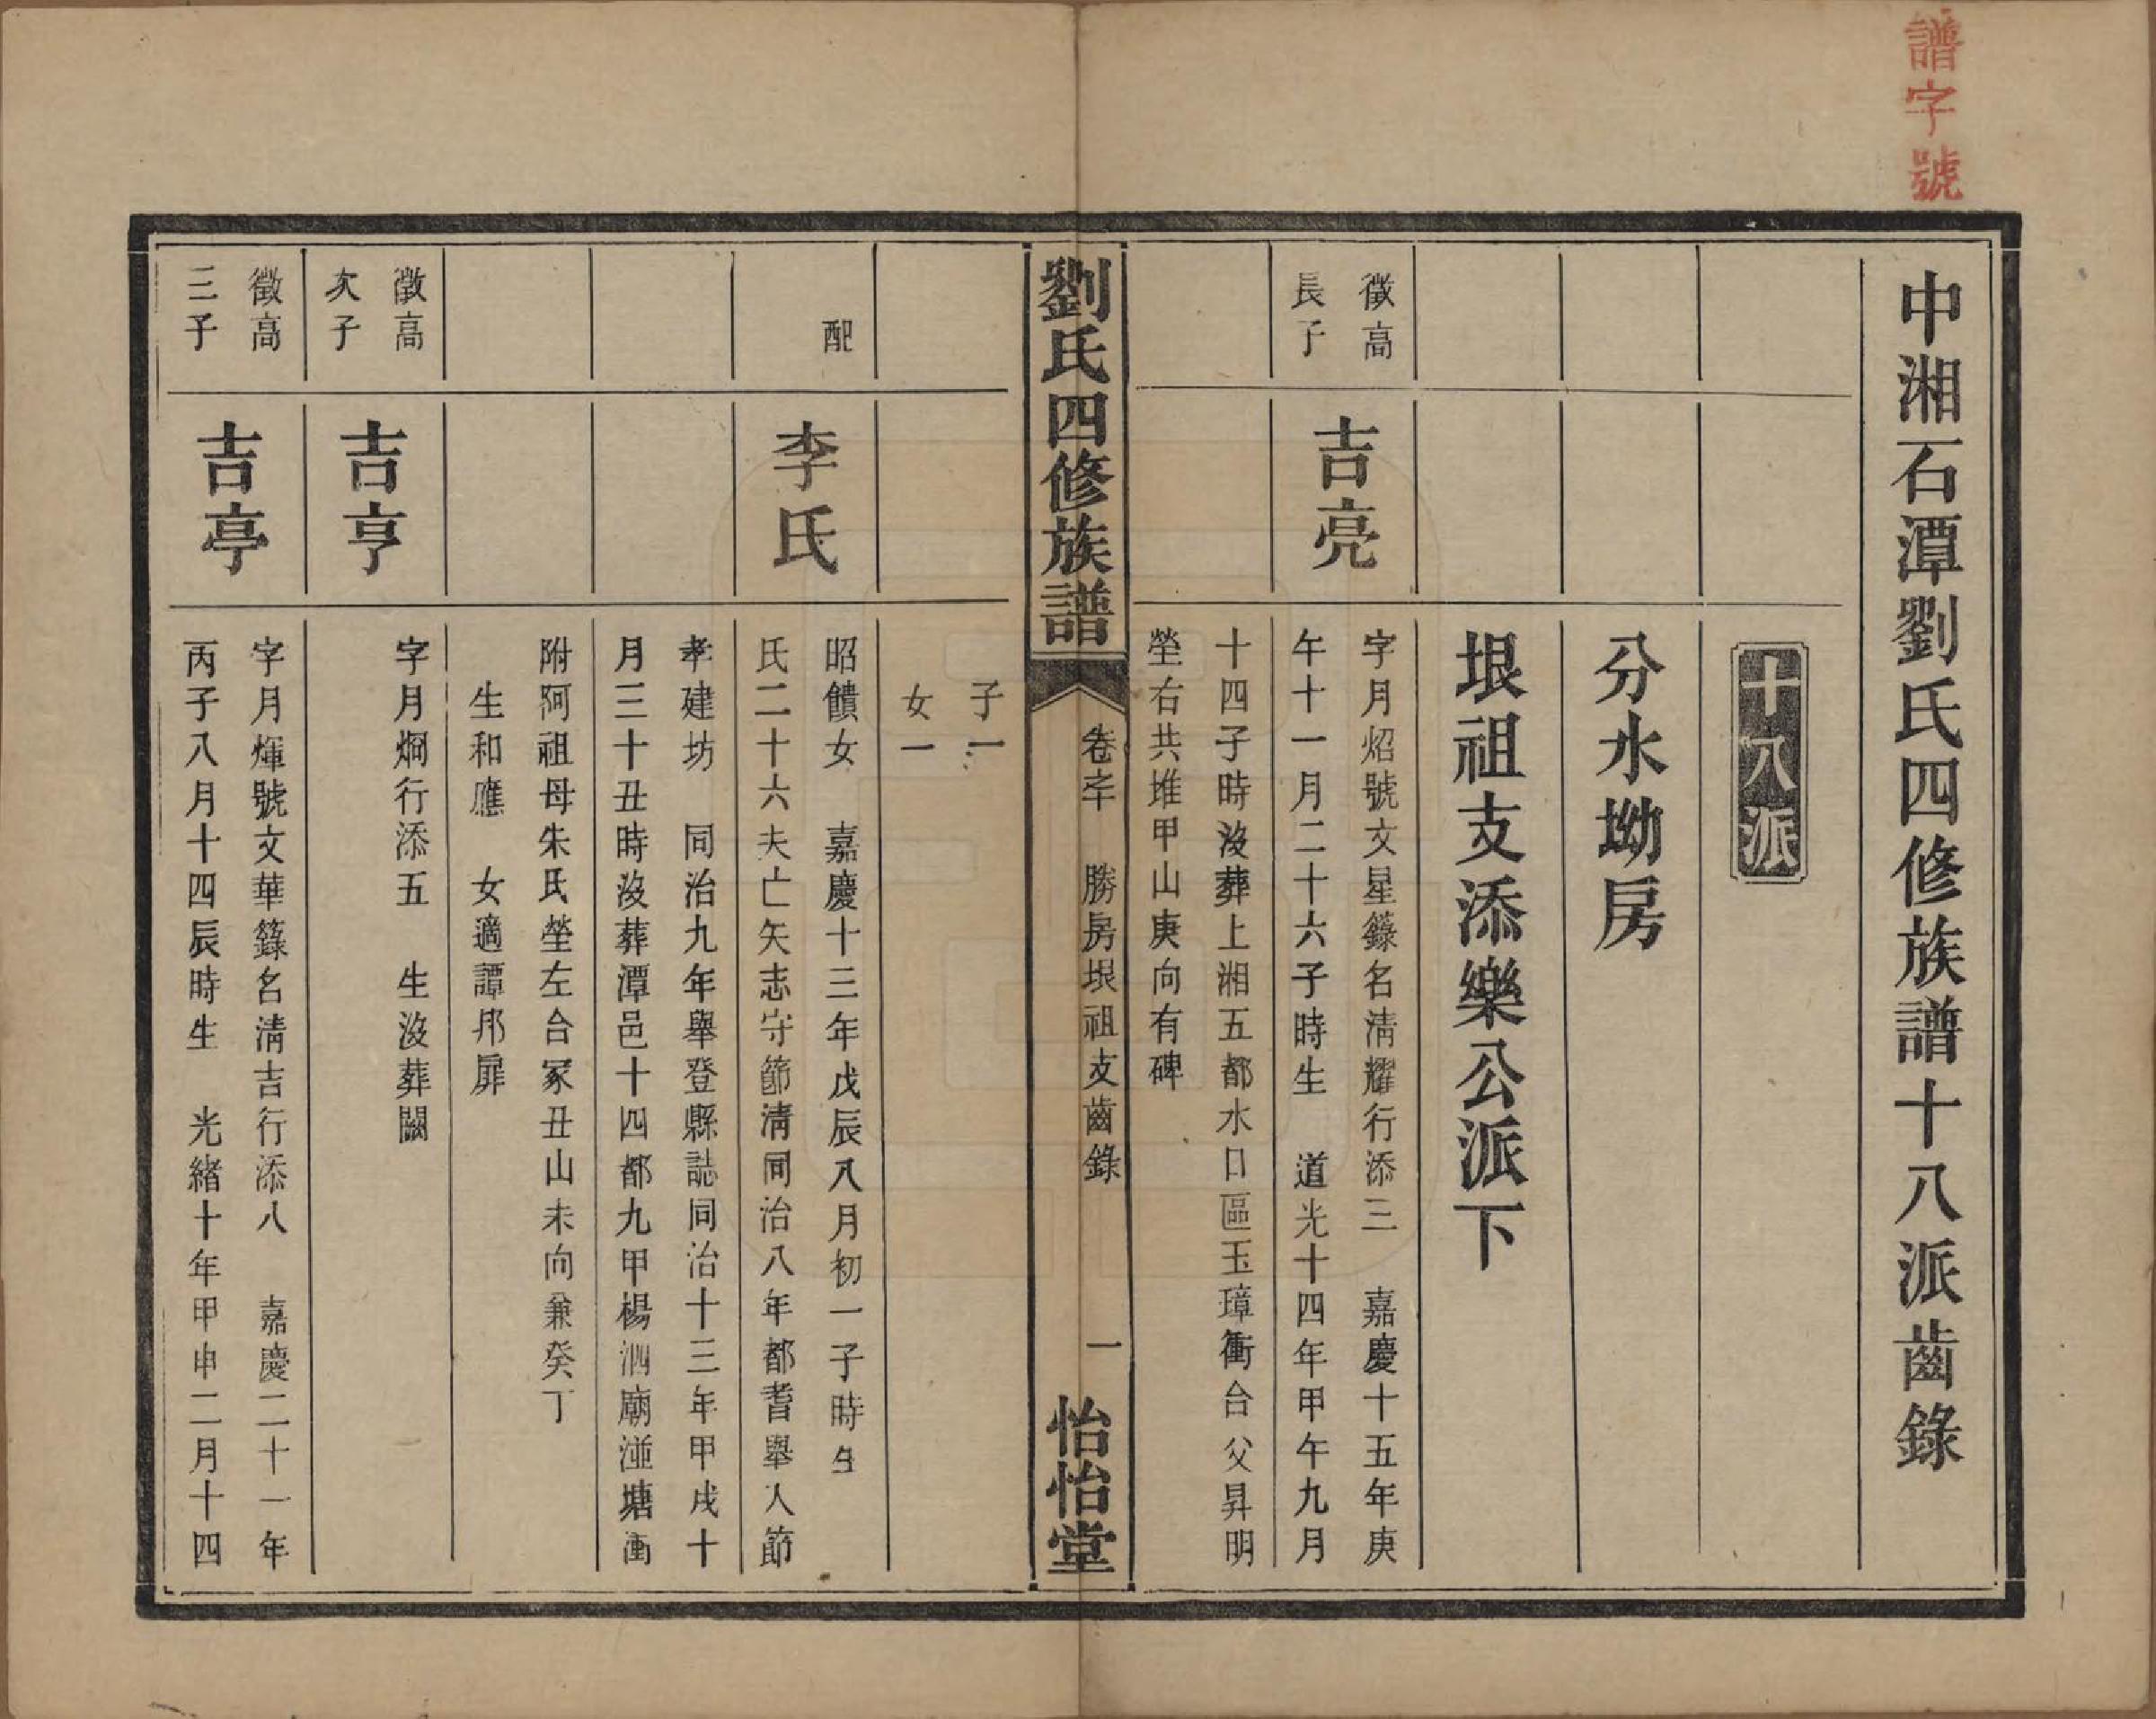 譜字號
中湘石潭劉氏四修族譜十八派齒錄
十八派
分水坳房
垠祖支添樂公派下
徵高
長子
吉亮
字月炤號文星籙名清耀行添三　嘉慶十五年庚
午十一月二十六子時生　道光十四年甲午九月
十四子時沒葬上湘五都水口區玉璋衝台父昇明
塋右共堆甲山庚向有碑
劉氏四修族譜
卷之　勝房垠祖支齒錄
一
怡怡堂
子一
女一
配
李氏
昭饋女　嘉慶十三年戊辰八月初一子時生
氏二十六夫亡矢志守節清同治八年都耆舉人節
孝建坊　同治九年舉登縣誌同治十三年甲戌十
月三十丑時沒葬潭邑十四都九甲楊泗廟湴塘
附阿祖母朱氏塋左合冢丑山未向兼癸丁
生和應　女適譚邦屛
徵高
次子
吉亨
字月烱行添五　生沒葬闕
徵高
三子
吉亭
字月煇號文華籙名清吉行添八　嘉慶二十一年
丙子八月十四辰時生　光緒十年甲申二月十四